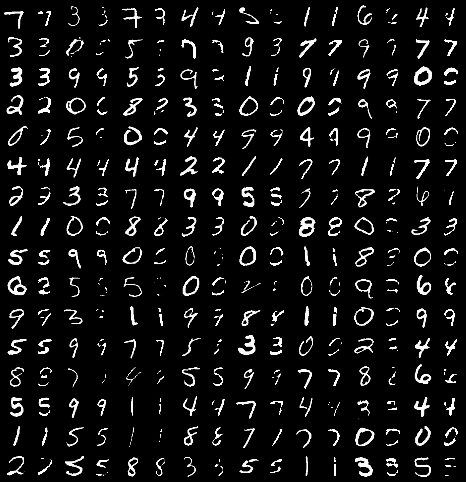 7 7 3 3 7 7 4 4 5 1 1 6 6 4 4
3 3 0 0 5 5 7 7 9 3 7 7 9 9 7 7
3 3 9 9 5 5 9 1 1 9 9 9 9 0 0
2 2 0 0 8 8 3 3 0 0 0 0 9 9 7 7
0 5 0 0 4 4 9 9 4 4 9 0 0
4 4 4 4 4 4 2 2 1 1 7 7 1 1 7 7
2 2 3 3 7 7 9 9 5 5 7 7 8 6
1 1 0 0 8 8 3 3 0 0 8 8 0 0 3 3
5 5 9 9 0 0 0 0 0 1 1 8 8 0 0
6 2 5 5 5 0 0 2 0 0 9 6 6
9 9 3 1 1 9 9 8 8 1 1 0 0 9 9
5 5 9 9 7 7 5 3 3 0 0 2 4 4
8 8 7 4 5 5 9 9 7 7 8 6 6
5 5 9 9 1 1 4 4 7 7 4 4 3 4 4
1 1 5 5 1 1 8 8 7 1 7 7 0 0 0 0
2 5 5 8 8 3 3 5 5 1 1 3 3 5 5